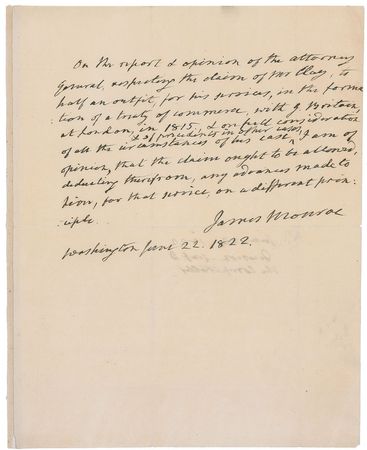 On the report & opinion of the attorney
General, respecting the claim of Mr Clay, to
half an outfit, for his services, in the forma
tion of a treaty of commerce, with G. Britain,
at London, in 1815, & on full consideration
& of precedents in other cases
of all the circumstances of his case ^ I am of
opinion, that the claim ought to be allowed,
deducting therefrom, any advances made to
him, for that service, on a different prin-
ciple.
James Monroe
Washington June 22. 1822.